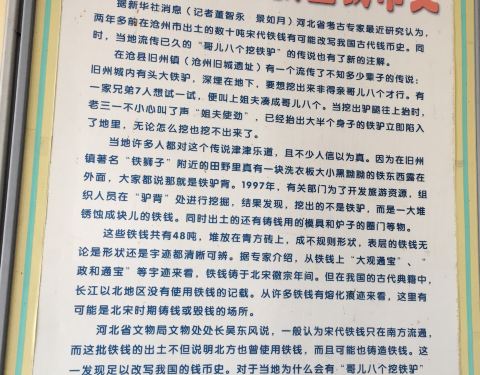 据新华社消息（记者董智永 景如月）河北省考古专家最近研究认为，
两年多前在沧州市出土的数十吨宋代铁钱有可能改写我国古代钱币史。同
时，当地流传已久的“哥儿八个挖铁驴”的传说也有了新的注解。
在沧县旧州镇（沧州旧城遗址）有一个流传了不知多少辈子的传说：
旧州城内有头大铁驴，深埋在地下，要想挖出来非得亲哥儿八个才行。有
一家兄弟7人想试一试，便叫上姐夫凑成哥儿八个。当挖出驴腿往上抬时，
老三一不小心叫了声“姐夫使劲”，已经抬出大半个身子的铁驴立即陷入
了地里，无论怎么挖也挖不出来了。
当地许多人都对这个传说津津乐道，且不少人信以为真。因为在旧州
镇著名“铁狮子”附近的田野里真有一块洗衣板大小黑黝黝的铁东西露在
外面，大家都说那就是铁驴背。1997年，有关部门为了开发旅游资源，组
织人员在“驴背”处进行挖掘，结果发现，挖出的不是铁驴，而是一大堆
锈蚀成块儿的铁钱。同时出土的还有铸钱用的模具和炉子的圈门等物。
这些铁钱共有48吨，堆放在青方砖上，成不规则形状，表层的铁钱无
论是形状还是字迹都清晰可辨。据专家介绍，从铁钱上“大观通宝”、“
政和通宝”等字迹来看，铁钱铸于北宋徽宗年间。但在我国的古代典籍中，
长江以北地区没有使用铁钱的记载。从许多铁钱有熔化痕迹来看，这里有
可能是北宋时期铸钱或毁钱的场所。
河北省文物局文物处处长吴东风说，一般认为宋代铁钱只在南方流通，
而这批铁钱的出土不但说明北方也曾使用铁钱，而且可能也铸造铁钱。这
一发现足以改写我国的钱币史。对于当地为什么会有“哥儿八个挖铁驴”